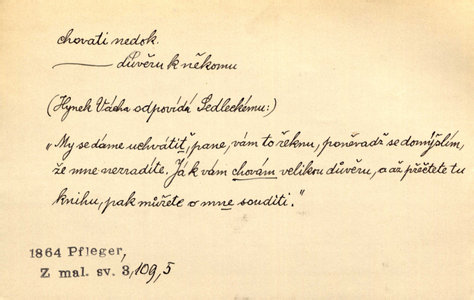 chovati nedok.
—— důvěru k někomu
(Hynek Vácha odpovídá Sedleckému:)
„My se dáme uchvátit, pane, vám to řeknu, poněvadž se domýšlím,
že mne nezradíte. Já k vám chovám velikou důvěru, a až přečtete tu
knihu, pak můžete o mne souditi."
1864 Pfleger,
Z mal. sv. 3,109,5